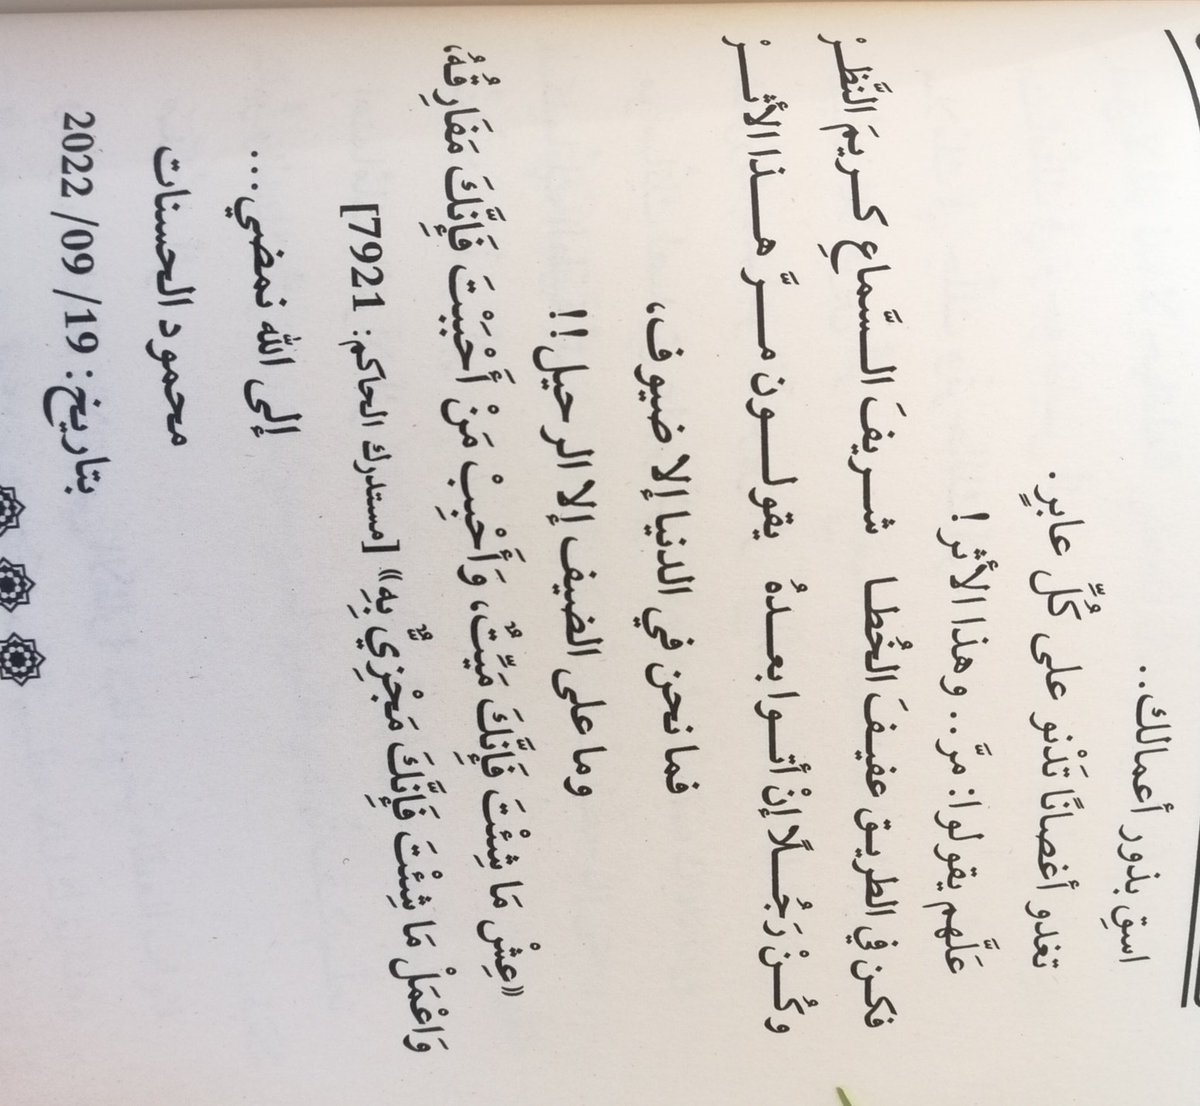 اسقِ بذور أعمالك..
تغدو أغصانًا تَدْنو على كُلِّ عابرٍ.
عَلَّهم يقولوا: مرَّ.. وهذا الأثر!
فكن في الطريق عفيفَ الخُطا شريفَ السَّماعِ كريمَ النَّظرْ
وكُنْ رَجُلًا إنْ أتوا بعدهُ يقولون مرَّ هذا الأثرْ
فما نحن في الدنيا إلا ضيوف،
وما على الضيف إلا الرحيل!!
«عِشْ مَا شِئْتَ فَإِنَّكَ مَيِّتٌ، وَأَحْبِبْ مَنْ أَحْبَبْتَ فَإِنَّكَ مَفَارِقُهُ،
وَاعْمَلْ مَا شِئْتَ فَإِنَّكَ مَجْزِيٌّ بِهِ» [مستدرك الحاكم: 7921]
إلى الله نمضي...
محمود الحسنات
بتاريخ: 19/ 09/ 2022